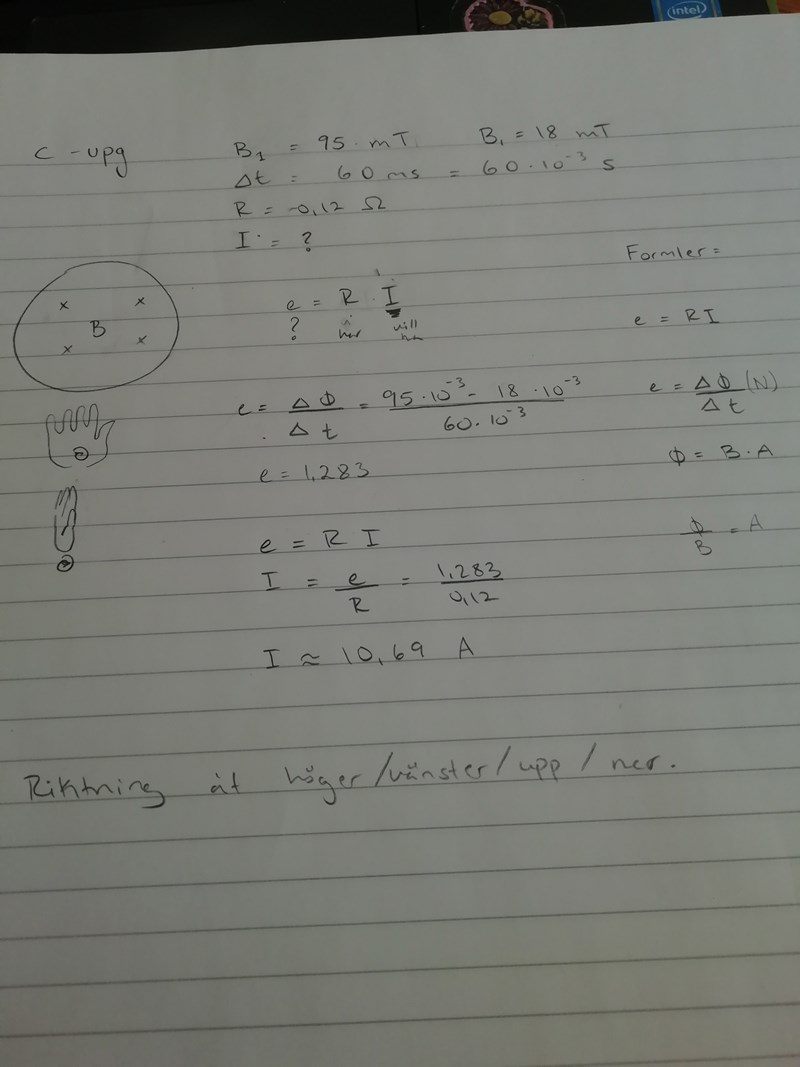 intel
C-upg
B₁ = 95 mT B₁ = 18 mT
Δt = 60 ms = 60·10⁻³ s
R = 0,12 Ω
I = ?
Formler =
e = R · I
? här vill ha
e = RI
x x
B
x x
e = ΔΦ/Δt = (95·10⁻³ - 18·10⁻³)/(60·10⁻³)
e = ΔΦ/Δt (N)
e = 1,283
Φ = B·A
e = R I
Φ/B = A
I = e/R = 1,283/0,12
I ≈ 10,69 A
Riktning åt höger/vänster/upp/ner.